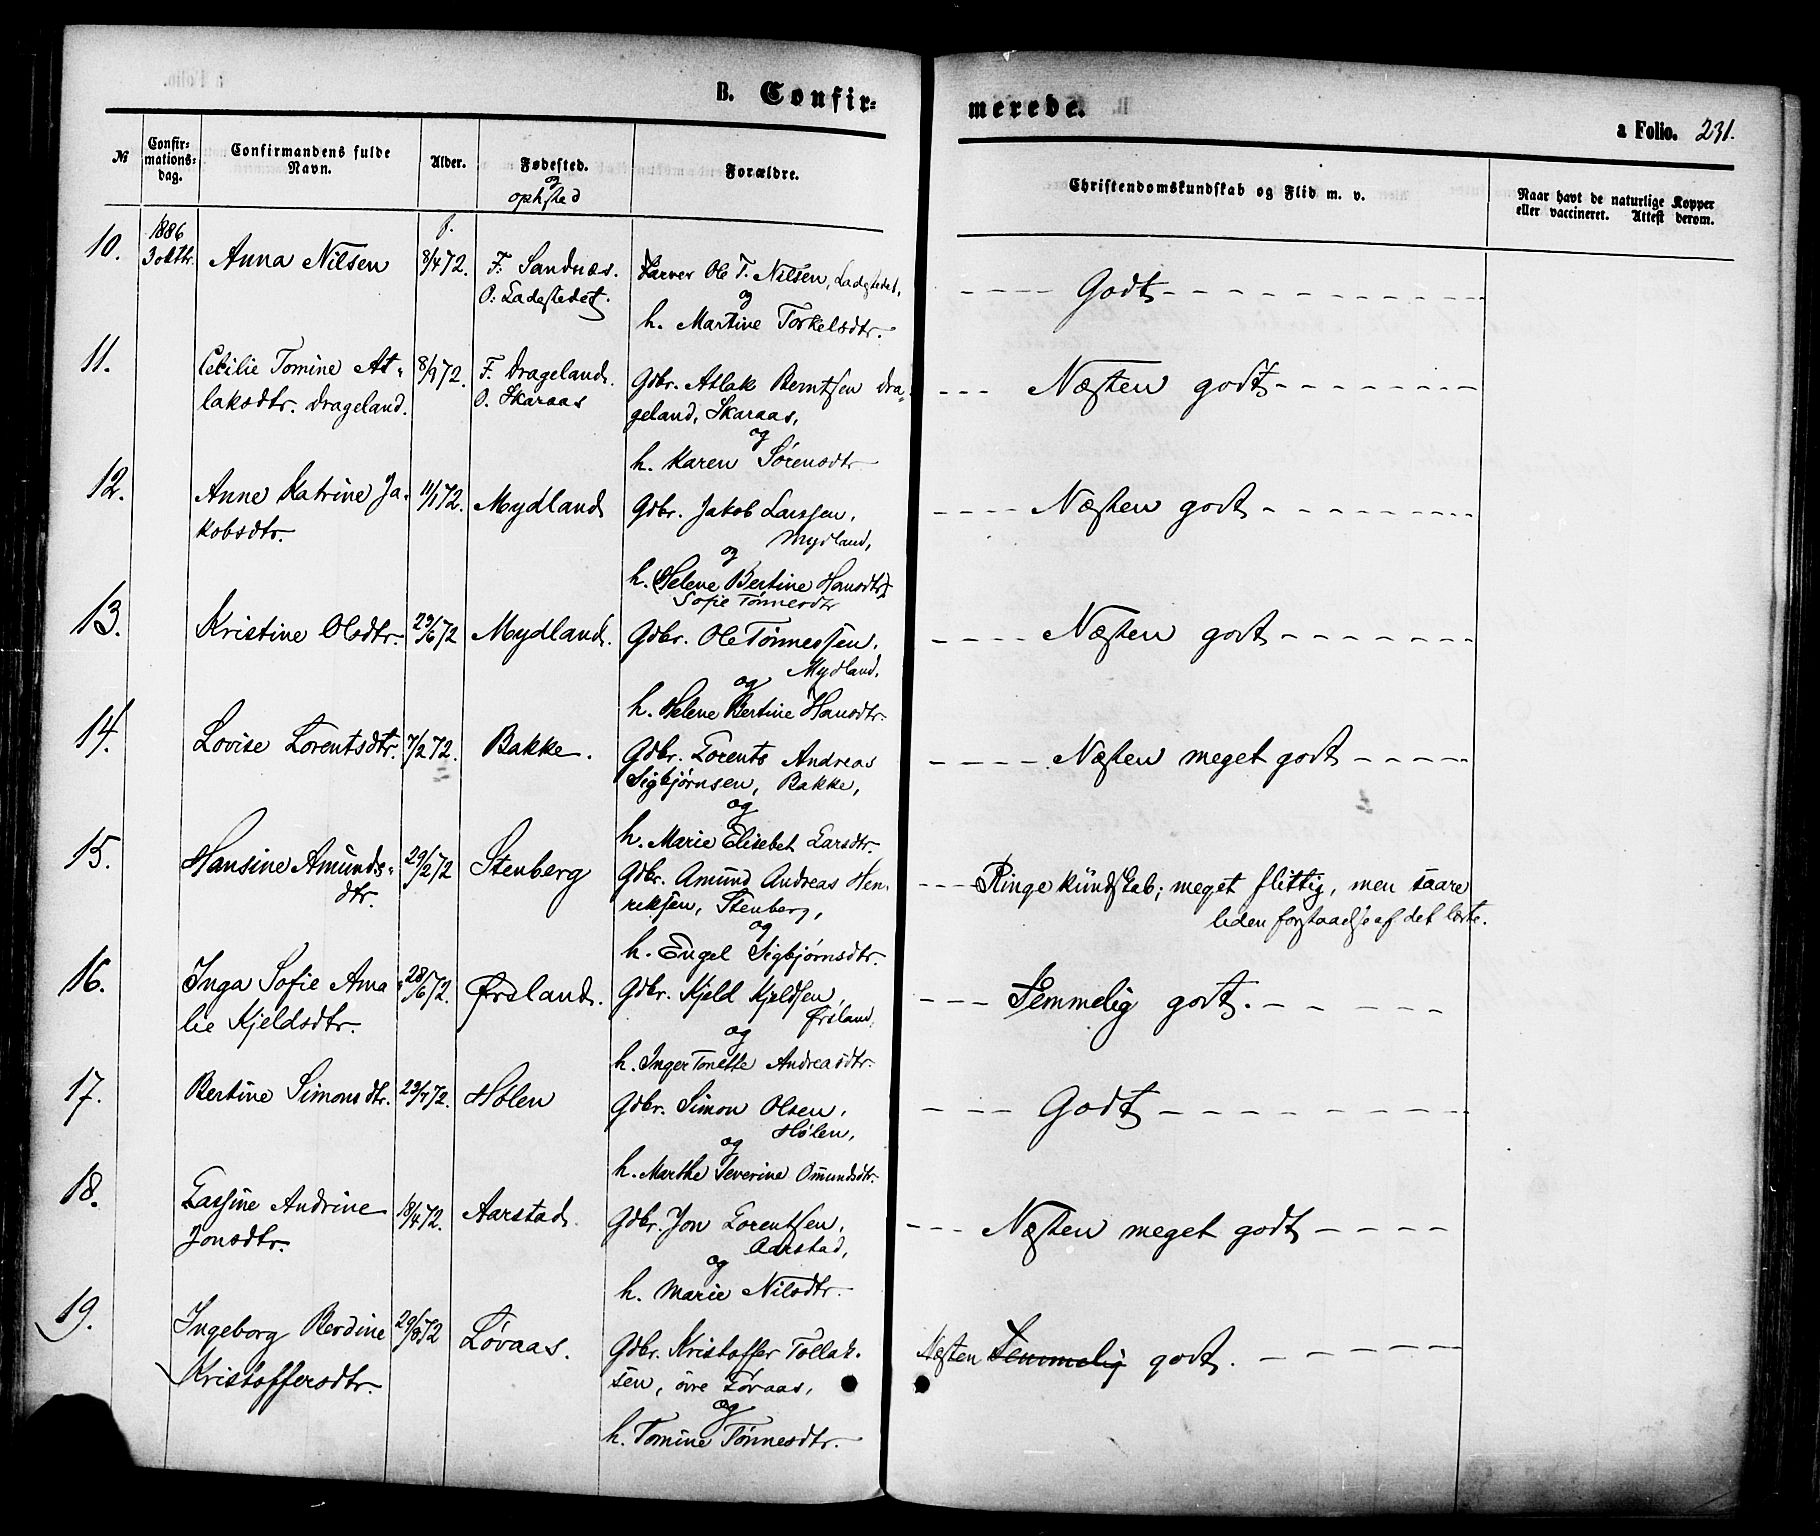 B. Confir=
merede.
a Folio. 231.
№
Confir=
mations=
dag.
Confirmandens fulde
Navn.
Alder.
Fødested.
og
ophsted
Forældre.
Christendomskundskab og Flid m. v.
Naar havt de naturlige Kopper
eller vaccineret. Attest derom.
10.
1886
3 oktbr.
Anna Nilsen
f.
8/4 72.
F: Sandnæs.
O: Ladestedet.
Farver Ole T. Nilsen, Ladestedet,
og
h. Martine Torkelsdtr.
Godt
11.
Cecilie Tomine At=
laksdtr. Drageland.
8/9 72.
F. Drageland.
O. Skaraas
Gdbr. Atlak Berntsen Dra=
geland, Skaraas,
og
h. Karen Sørensdtr
Næsten godt
12.
Anne Katrine Ja=
kobsdtr.
11/1 72.
Mydland
Gdbr. Jakob Larssen,
Mydland,
og
h. (Helene Bertine Hansdtr)
Sofie Tønnesdtr
Næsten godt
13.
Kristine Olsdtr.
29/6 72
Mydland.
Gdbr. Ole Tønnessen,
Mydland,
og
h. Helene Bertine Hansdtr.
Næsten godt
14.
Lovise Lorentsdtr.
7/2 72.
Bakke.
Gdbr. Lorents Andreas
Sigbjørnsen, Bakke,
og
h. Marie Elisebet Larsdtr.
Næsten meget godt
15.
Hansine Amunds=
dtr.
29/2 72
Stenberg
Gdbr. Amund Andreas Hen=
riksen, Stenberg,
og
h. Engel Sigbjørnsdtr.
Ringe kundskab; meget flittig, men saare
liden forstaaelse af det lærte.
16.
Inga Sofie Ama=
lie Kjeldsdtr.
28/6 72.
Ørsland.
Gdbr. Kjeld Kjeldsen,
Ørsland,
og
h. Inger Tonette Andreasdtr.
Temmelig godt.
17.
Bertine Simonsdtr.
23/7 72.
Hølen
Gdbr. Simon Olsen,
Hølen,
og
h. Marthe Severine Omundsdtr.
Godt
18.
Lassine Andrine
Jonsdtr.
18/4 72.
Aarstad.
Gdbr. Jon Lorentsen,
Aarstad,
og
h. Marie Nilsdtr.
Næsten meget godt
19.
Ingeborg Berdine
Kristoffersdtr.
29/9 72
Løvaas.
Gdbr. Kristoffer Tollak=
sen, øvre Løvaas,
og
h. Tomine Tønnesdtr.
Næsten Temmelig godt.